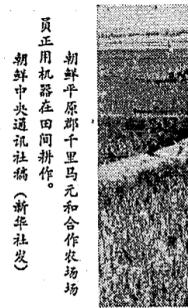 朝鲜平原郡千里马元和合作农场场
员正用机器在田间耕作。
朝鲜中央通讯社稿（新华社发）